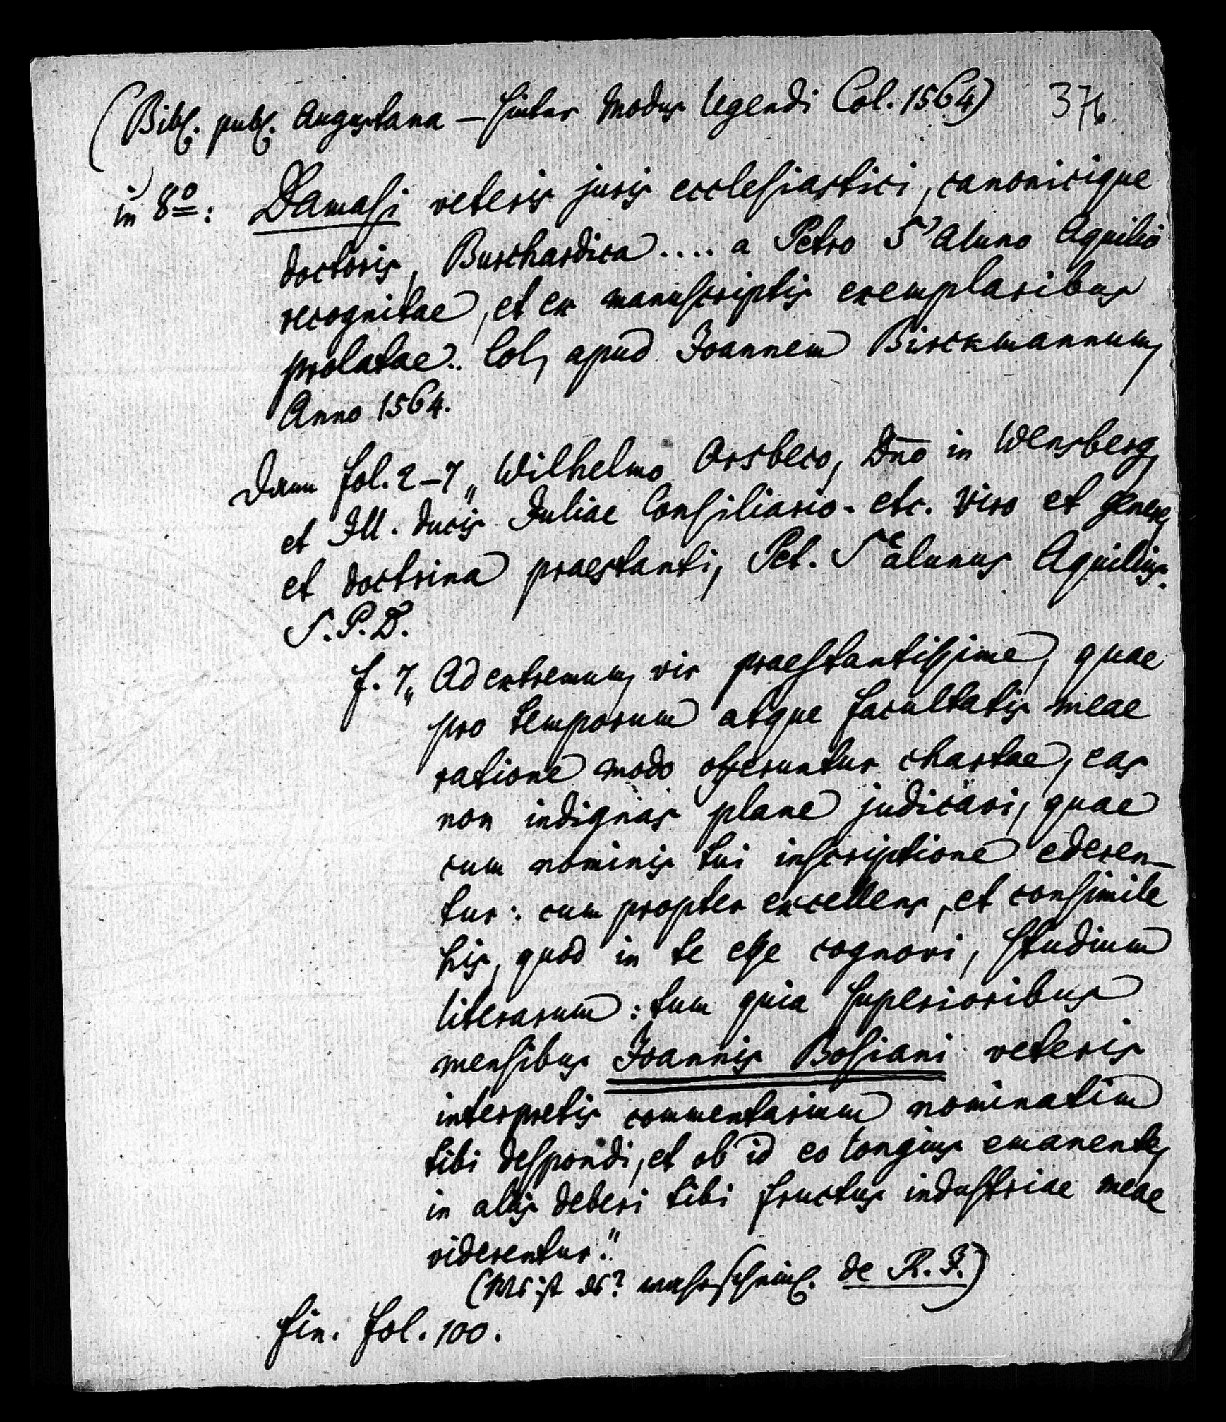 (Bibl. publ. Augustana – hinter Modus legendi Col. 1564) 376.
in 8º: Damasi veteris juris ecclesiastici, canonicique
doctoris, Burchardica .... a Petro S'aluno Aquilio
recognitae, et ex manuscriptis exemplaribus
prolatae .. Col, apud Joannem Birckmannum,
Anno 1564.
Dann fol. 2–7 „ Wilhelmo Orsbeco, Dn̄o in Wensberg,
et Ill. ducis Juliae Consiliario. etc. viro et genere,
et doctrina praestanti, Pet. S'alunus Aquilius.
S. P. D.
f. 7 „ Ad extremum, vir praestantissime, quae
pro temporum atque facultatis meae
ratione modo offeruntur chartae, eas
non indignas plane judicavi, quae
cum nominis tui inscriptione ederen-
tur: cum propter excellens, et consimile
his, quod in te esse cognovi, studium
literarum: tum quia superioribus
mensibus Joannis Bosiani veteris
interpretis commentarium nominatim
tibi despondi, et ob id eo longius emanentes,
in aliis deberi tibi fructus industriae meae
viderentur."
(Wo ist ? wahrscheinl. de R. J.)
fin. fol. 100.